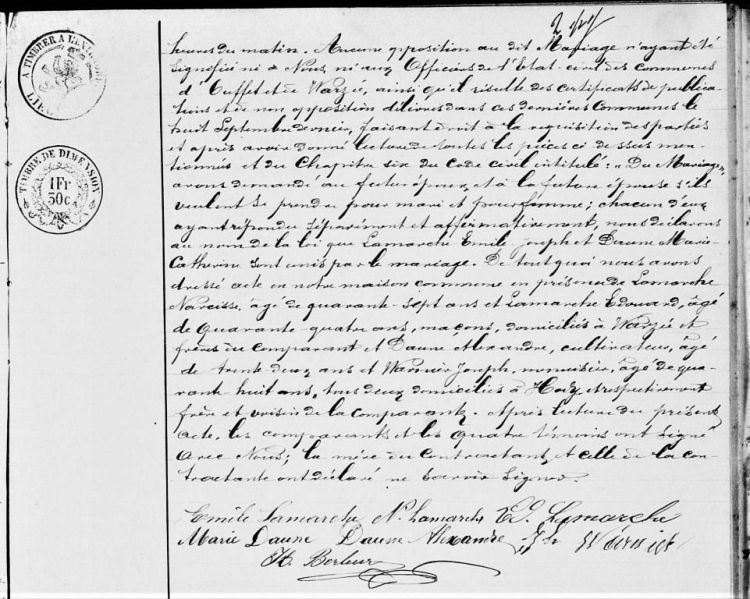 A TIMBRER A L'EX
LIE
TIMBRE DE DIMENSION
1 Fr
50c
heures du matin. Aucune opposition au dit Mariage n'ayant été
signifiée ni à Nous, ni aux Officiers de l'Etat-civil des communes
d'Ouffet et de Warzée, ainsi qu'il résulte des certificats de publica-
tions et de non opposition délivrés dans ces dernières communes le
huit Septembre dernier, faisant droit à la réquisition des parties
et après avoir donné lecture de toutes les pièces ci dessus men-
tionnées et du Chapitre six du Code civil intitulé: "Du Mariage",
avons demandé au futur époux et à la future épouse s'ils
veulent se prendre pour mari et pour femme; chacun d'eux
ayant répondu séparément et affirmativement, nous déclarons
au nom de la loi que Lamarche Emile Joseph et Daune Marie
Catherine sont unis par le mariage. De tout quoi nous avons
dressé acte en notre maison commune en présence de Lamarche
Narcisse, âgé de quarante-sept ans et Lamarche Edouard, âgé
de quarante-quatre ans, maçons, domiciliés à Warzée et
frères du comparant et Daune Alexandre, cultivateur, âgé
de trente deux ans et Joseph, menuisier, âgé de qua-
rante huit ans, tous deux domiciliés à et respectivement
frère et voisin de la comparante. Après lecture du présent
acte, les comparants et les quatre témoins ont signé
avec Nous; la mère du Contractant et celle de la con-
tractante ont déclaré ne savoir signer.
Emile Lamarche N. Lamarche Ed. Lamarche
Marie Daune Daune Alexandre